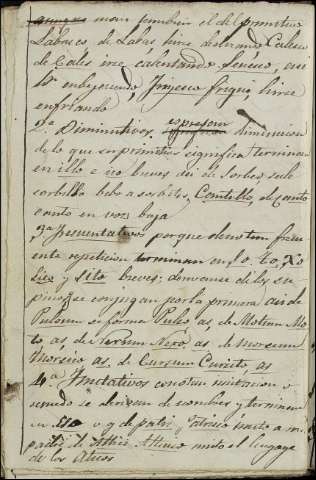 mas tambien el del primitivo
Labasco de Labas, hirse doblando Calesco
de Cales irse calentando, Senesco, en
enbejeciendo, Frigesco frigui, hirse
enfriando
2.ª Diminutivos. espresan diminucion
de lo que su primitivo significa terminan
en illo e ico breves asi de Sorbeo, sale
sorbillo bebo a sorbitos, Cantillo, el canto
canto en voz baja
3.ª frecuentativos porque denotan frecu
ente repeticion terminan en so, to, xo
ico y sito breves; derivanse de los su
pinos se conjugan por la primera asi de
Pulsum se forma Pulso as de Motum Mo
to, as, de Nexum Nexo, as de Morsum
Morsito as. de Cursum Cursito, as
4.ª Imitativos constan imitacion o
remedo se derivan de nombres y terminan
en sso o y de patri, Patrisso imito a mi
padre de Attici Atticisso imito el lenguage
de los Aticos